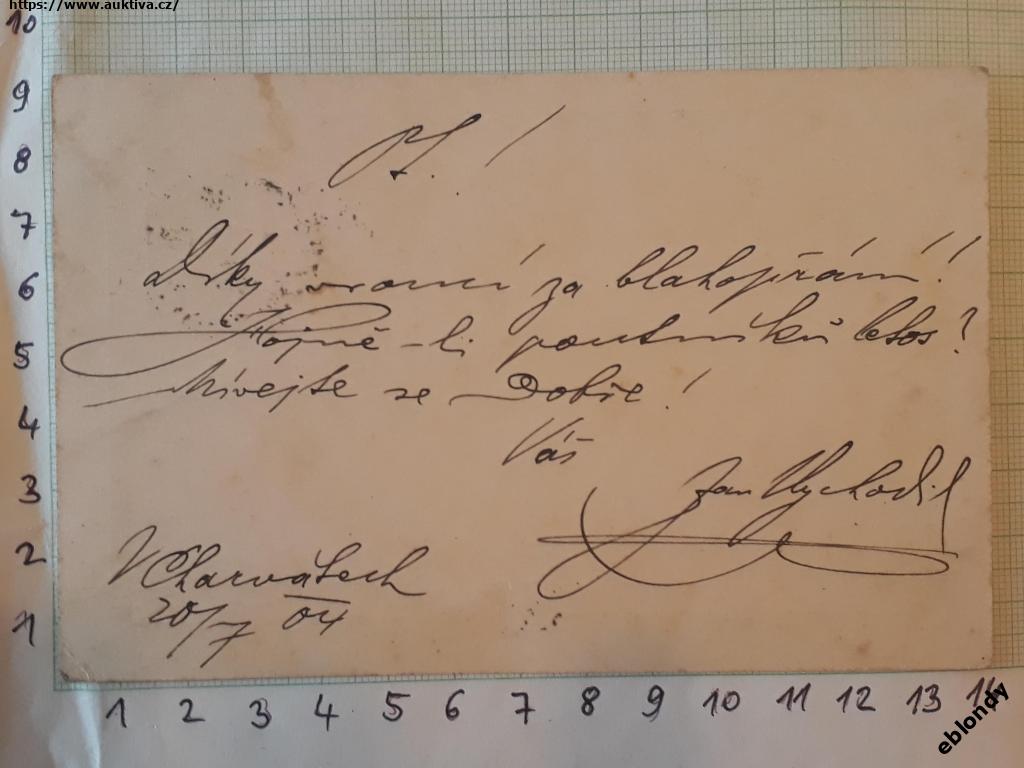 https://www.auktiva.cz/
Díky vroucí za blahopřání!
Hojně-li poutníků letos?
Mívejte se Dobře!
Váš
Jan Vychodil
V Charvátech
20/7 04
10
9
8
7
6
5
4
3
2
1
1 2 3 4 5 6 7 8 9 10 11 12 13 14
eblondy